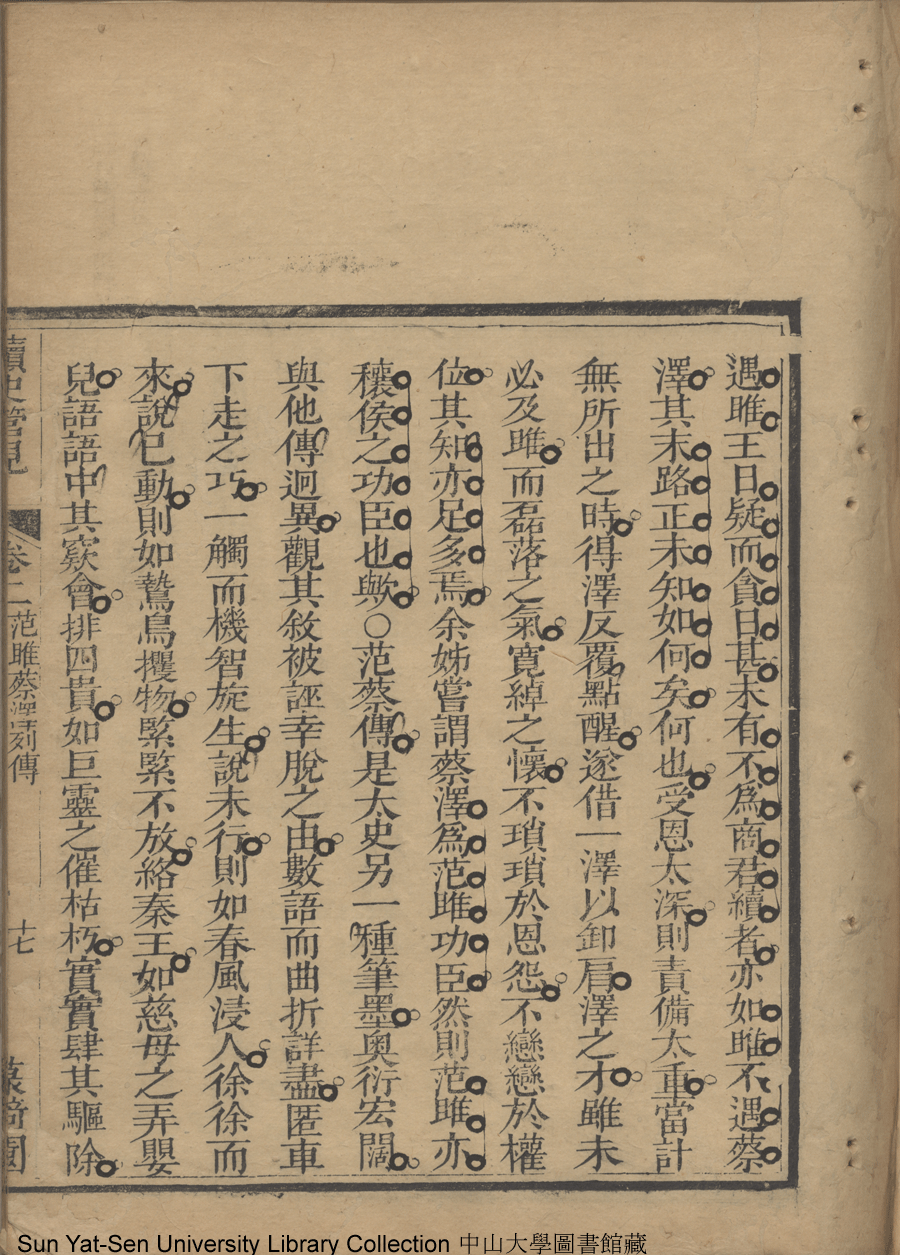 遇雎王日疑而貪日甚未有不爲商君續者亦如雎不遇蔡
澤其末路正未知如何矣何也受恩太深則責備太重當計
無所出之時得澤反覆點醒遂借一澤以卸肩澤之才雖未
必及雎而磊落之氣寛綽之懷不瑣瑣於恩怨不戀戀於權
位其知亦足多焉余姊嘗謂蔡澤爲范雎功臣然則范雎亦
穰侯之功臣也歟○范蔡傳是太史另一種筆墨奥衍宏闊
與他傳迥異觀其敘被誣幸脫之由數語而曲折詳盡匿車
下走之巧一觸而機智旋生說未行則如春風浸人徐徐而
來說已動則如鷙鳥攫物緊緊不放絡秦王如慈母之弄嬰
兒語語中其窽會排四貴如巨靈之催枯朽實實肆其驅除
讀史管見 卷二 范雎蔡澤列傳 十七 園
Sun Yat-Sen University Library Collection 中山大學圖書館藏